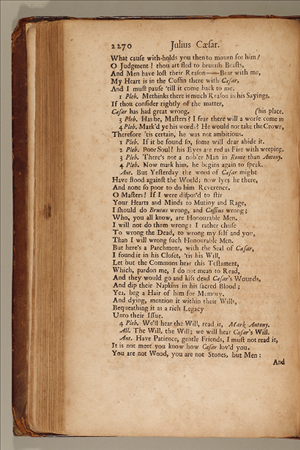 2270 Julius Cæsar.
What cause with-holds you then to mourn for him?
O Judgment! thou art fled to brutish Beasts,
And Men have lost their Reason——Bear with me,
My Heart is in the Coffin there with Cæsar,
And I must pause 'till it come back to me.
1 Pleb. Methinks there is much Reason in his Sayings,
If thou consider rightly of the matter,
Cæsar has had great wrong. (his place.
3 Pleb. Has he, Masters? I fear there will a worse come in
4 Pleb. Mark'd ye his words? He would not take the Crown,
Therefore 'tis certain, he was not ambitious.
1 Pleb. If it be found so, some will dear abide it.
2 Pleb. Poor Soul! his Eyes are red as Fire with weeping.
3 Pleb. There's not a nobler Man in Rome than Antony.
4 Pleb. Now mark him, he begins again to speak.
Ant. But Yesterday the word of Cæsar might
Have stood against the World; now lyes he there,
And none so poor to do him Reverence.
O Masters! If I were dispos'd to stir
Your Hearts and Minds to Mutiny and Rage,
I should do Brutus wrong, and Cassius wrong:
Who, you all know, are Honourable Men.
I will not do them wrong: I rather chuse
To wrong the Dead, to wrong my self and you,
Than I will wrong such Honourable Men.
But here's a Parchment, with the Seal of Cæsar,
I found it in his Closet, 'tis his Will,
Let but the Commons hear this Testament,
Which, pardon me, I do not mean to Read,
And they would go and kiss dead Cæsar's Wounds,
And dip their Napkins in his sacred Blood;
Yea, beg a Hair of him for Memory,
And dying, mention it within their Wills,
Bequeathing it as a rich Legacy
Unto their Issue.
4 Pleb. We'll hear the Will, read it, Mark Antony.
All. The Will, the Will; we will hear Cæsar's Will.
Ant. Have Patience, gentle Friends, I must not read it,
It is not meet you know how Cæsar lov'd you.
You are not Wood, you are not Stones, but Men:
And